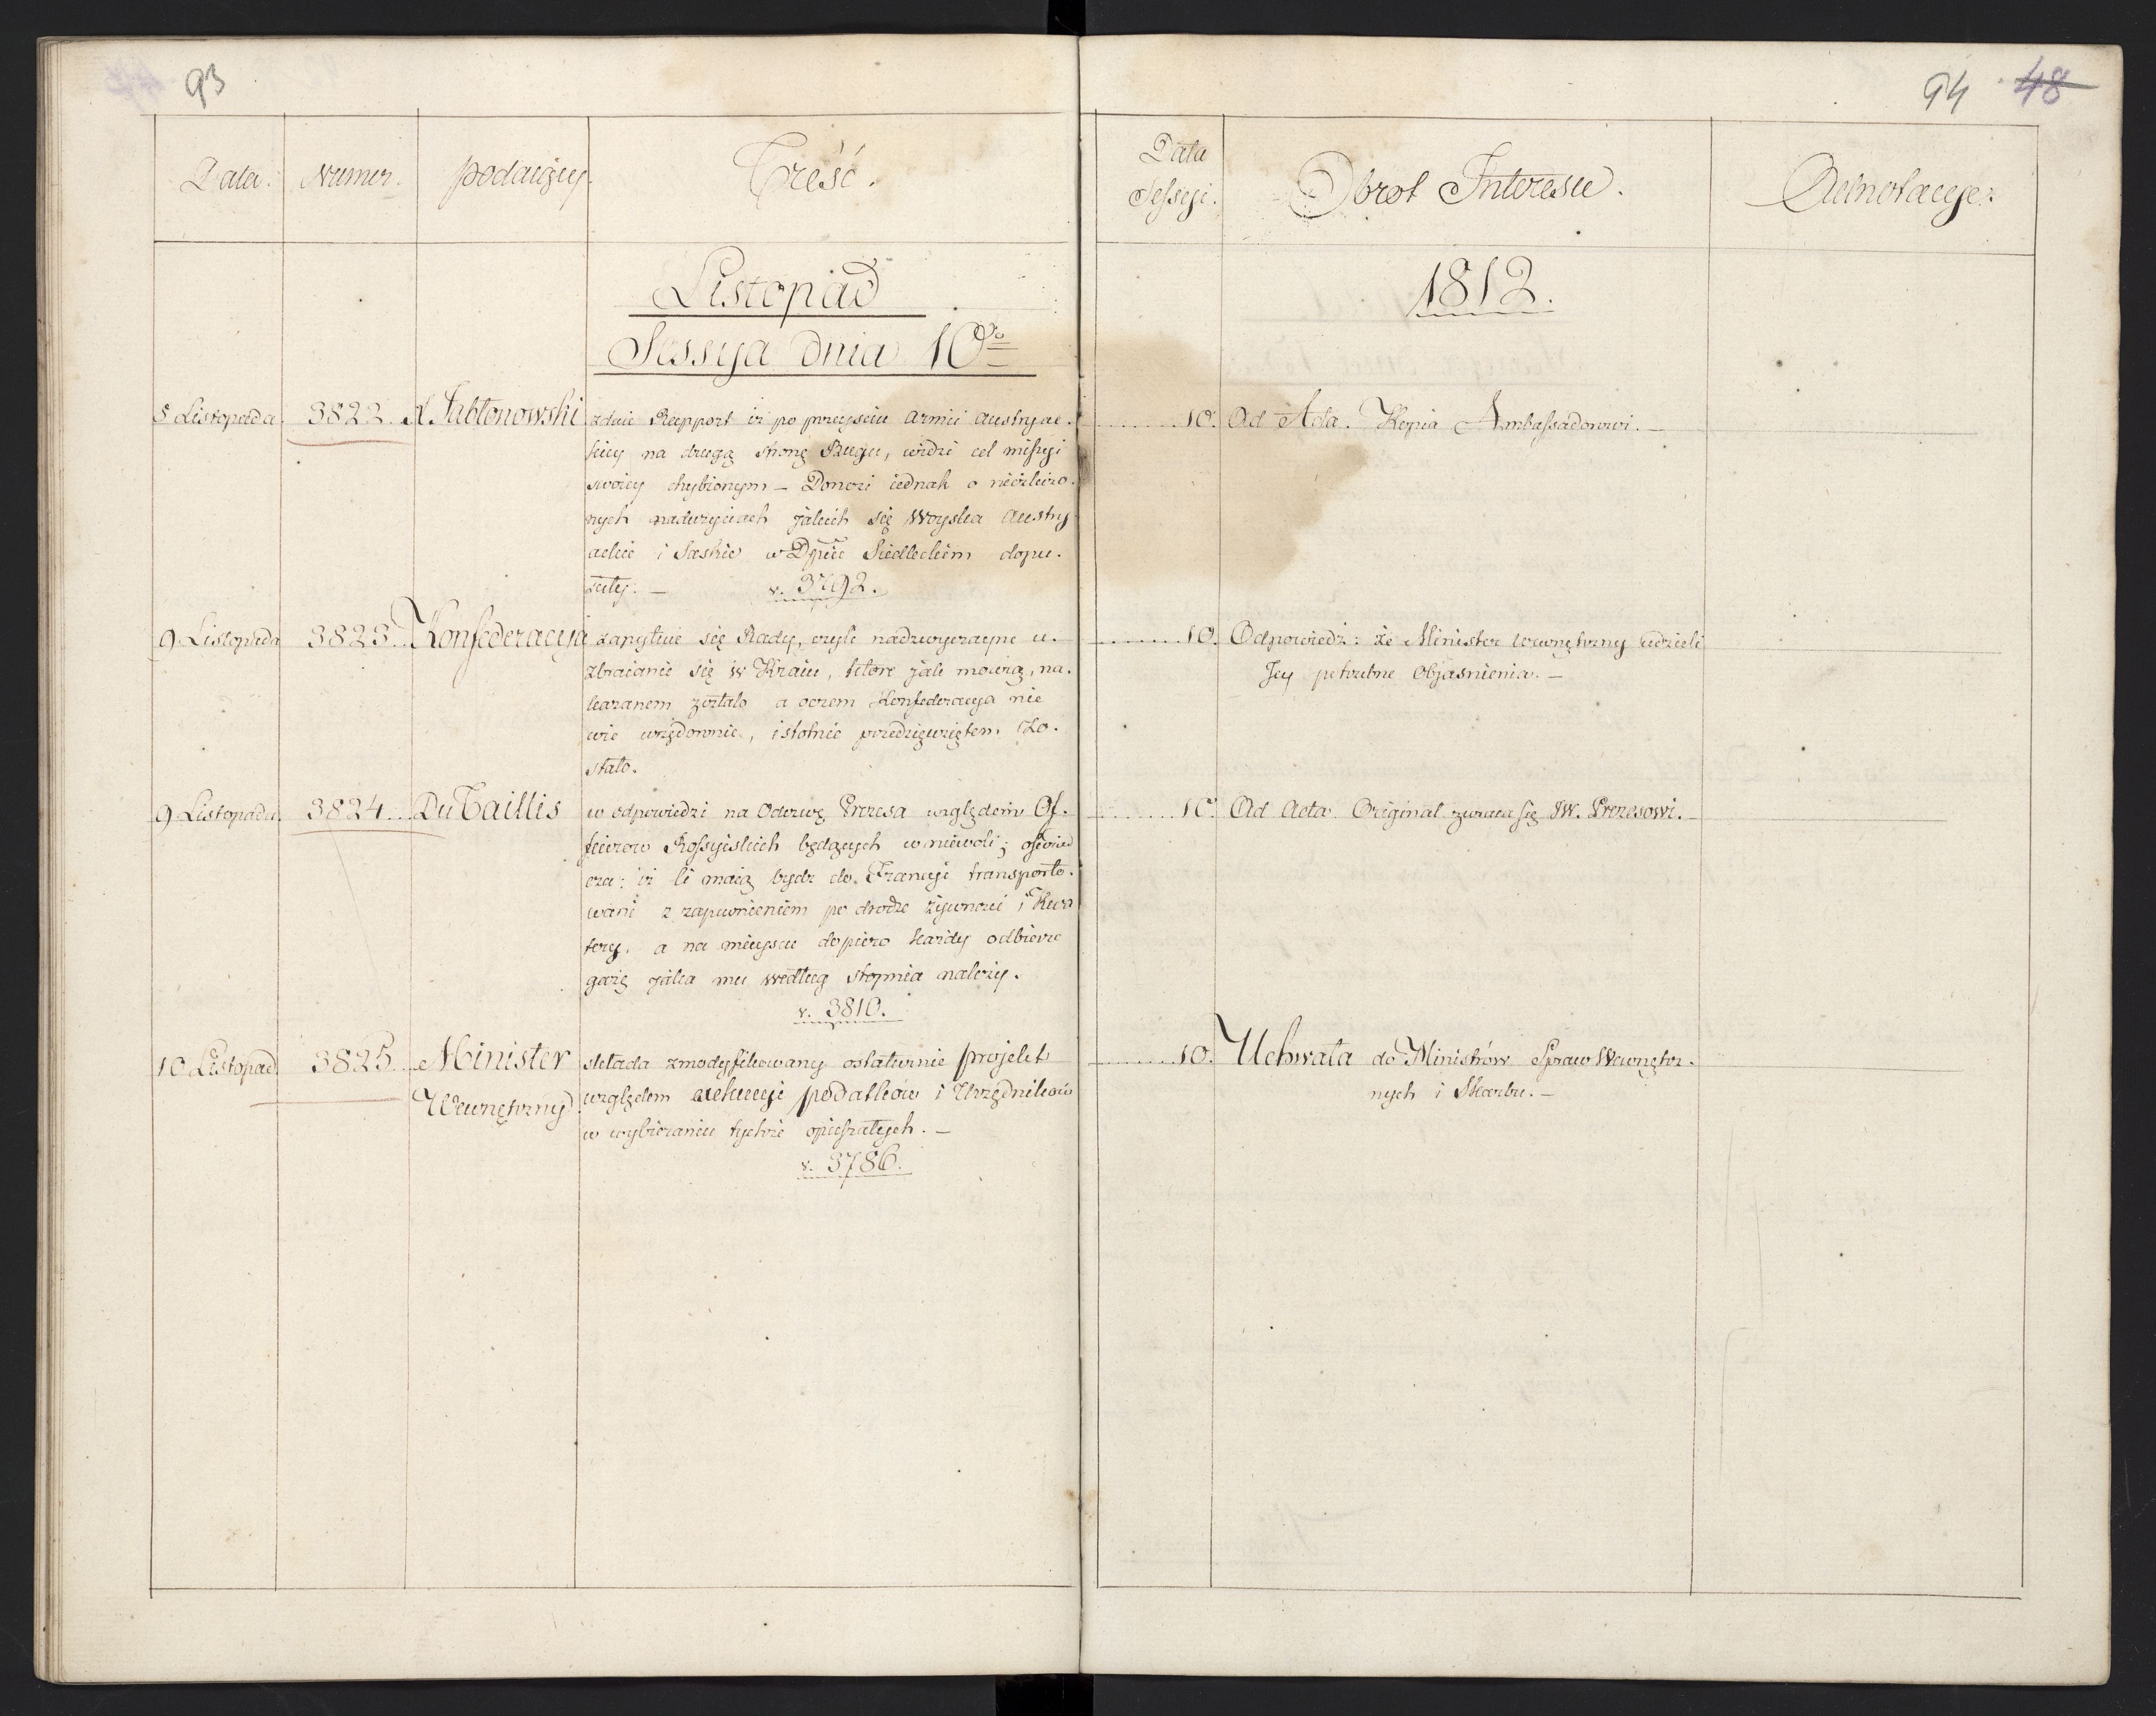 93
Data. Numer. podaiący. Treść.
Listopad
Sessyja dnia 10go
5 Listopada. 3822. X. Jabłonowski zdaie Rapport iż po przeyściu Armii Austryac.
kiey na drugą stronę Bugu, widzi cel missyi
swoiey chybionym – Donosi iednak o niezliczo.
nych nadużyciach jakich się Woyska Austry
ackie i Saskie w Dpcie Siedleckim dopu.
sciły. – v. 3792.
9 Listopada 3823. Konfederacyja zapytuie się Rady, czyli nadzwyczayne u.
zbraianie się w Kraiu, które jak mówią, na.
kazanem zostało a oczem Konfederacyja nie
wie urzędownie, istotnie przedsięwziętem Zo.
stało.
9 Listopada. 3824. Du Taillis w odpowiedzi na Odezwę Prezesa względem Of.
ficerów Rossyiskich będących w niewoli; oświad
cza: iż ci maią bydz do Francyi transporto.
wani z zapewnieniem po drodze żywności i Kwa
tery, a na mieyscu dopiero każdy odbierze
gażę jaka mu według stopnia należy.
v. 3810.
10 Listopad 3825. Minister składa zmodyfikowany ostatecznie projekt
Wewnętrzny względem exekucyi podatków i Urzędników
w wybieraniu tychże opieszałych. –
v. 3786.
94 48
Data
Sessyi. Obrot Interessu. Adnotacye.
1812.
10. Ad Acta. Kopia Ambassadorowi. –
10. Odpowiedź: że Minister wewnętrzny udzieli
Jey potrzebne Objasnienia. –
10. Ad Acta Original zwraca się JW. Prezesowi. –
10. Uchwała do Ministrów Spraw Wewnętrz.
nych i Skarbu. –